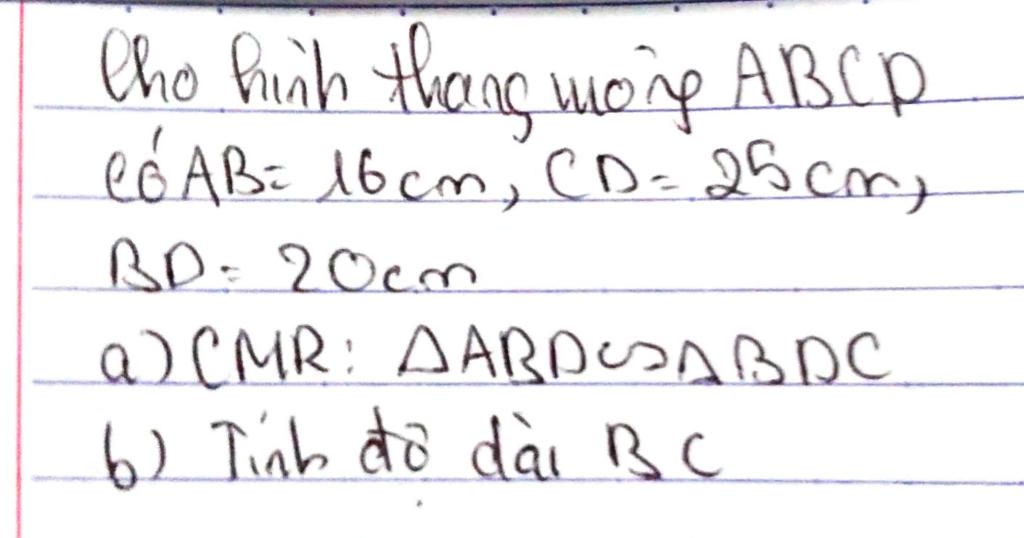 Cho hình thang vuông ABCD
có AB = 16cm, CD = 25cm,
BD = 20cm
a) CMR: ΔABD∽ΔBDC
b) Tính độ dài BC